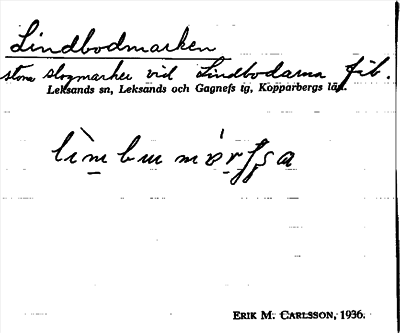 Lindbodmarken
stora skogmarker vid Lindbodarna fäb.
Leksands sn, Leksands och Gagnefs tg, Kopparbergs län.
ERIK M. CARLSSON, 1936.